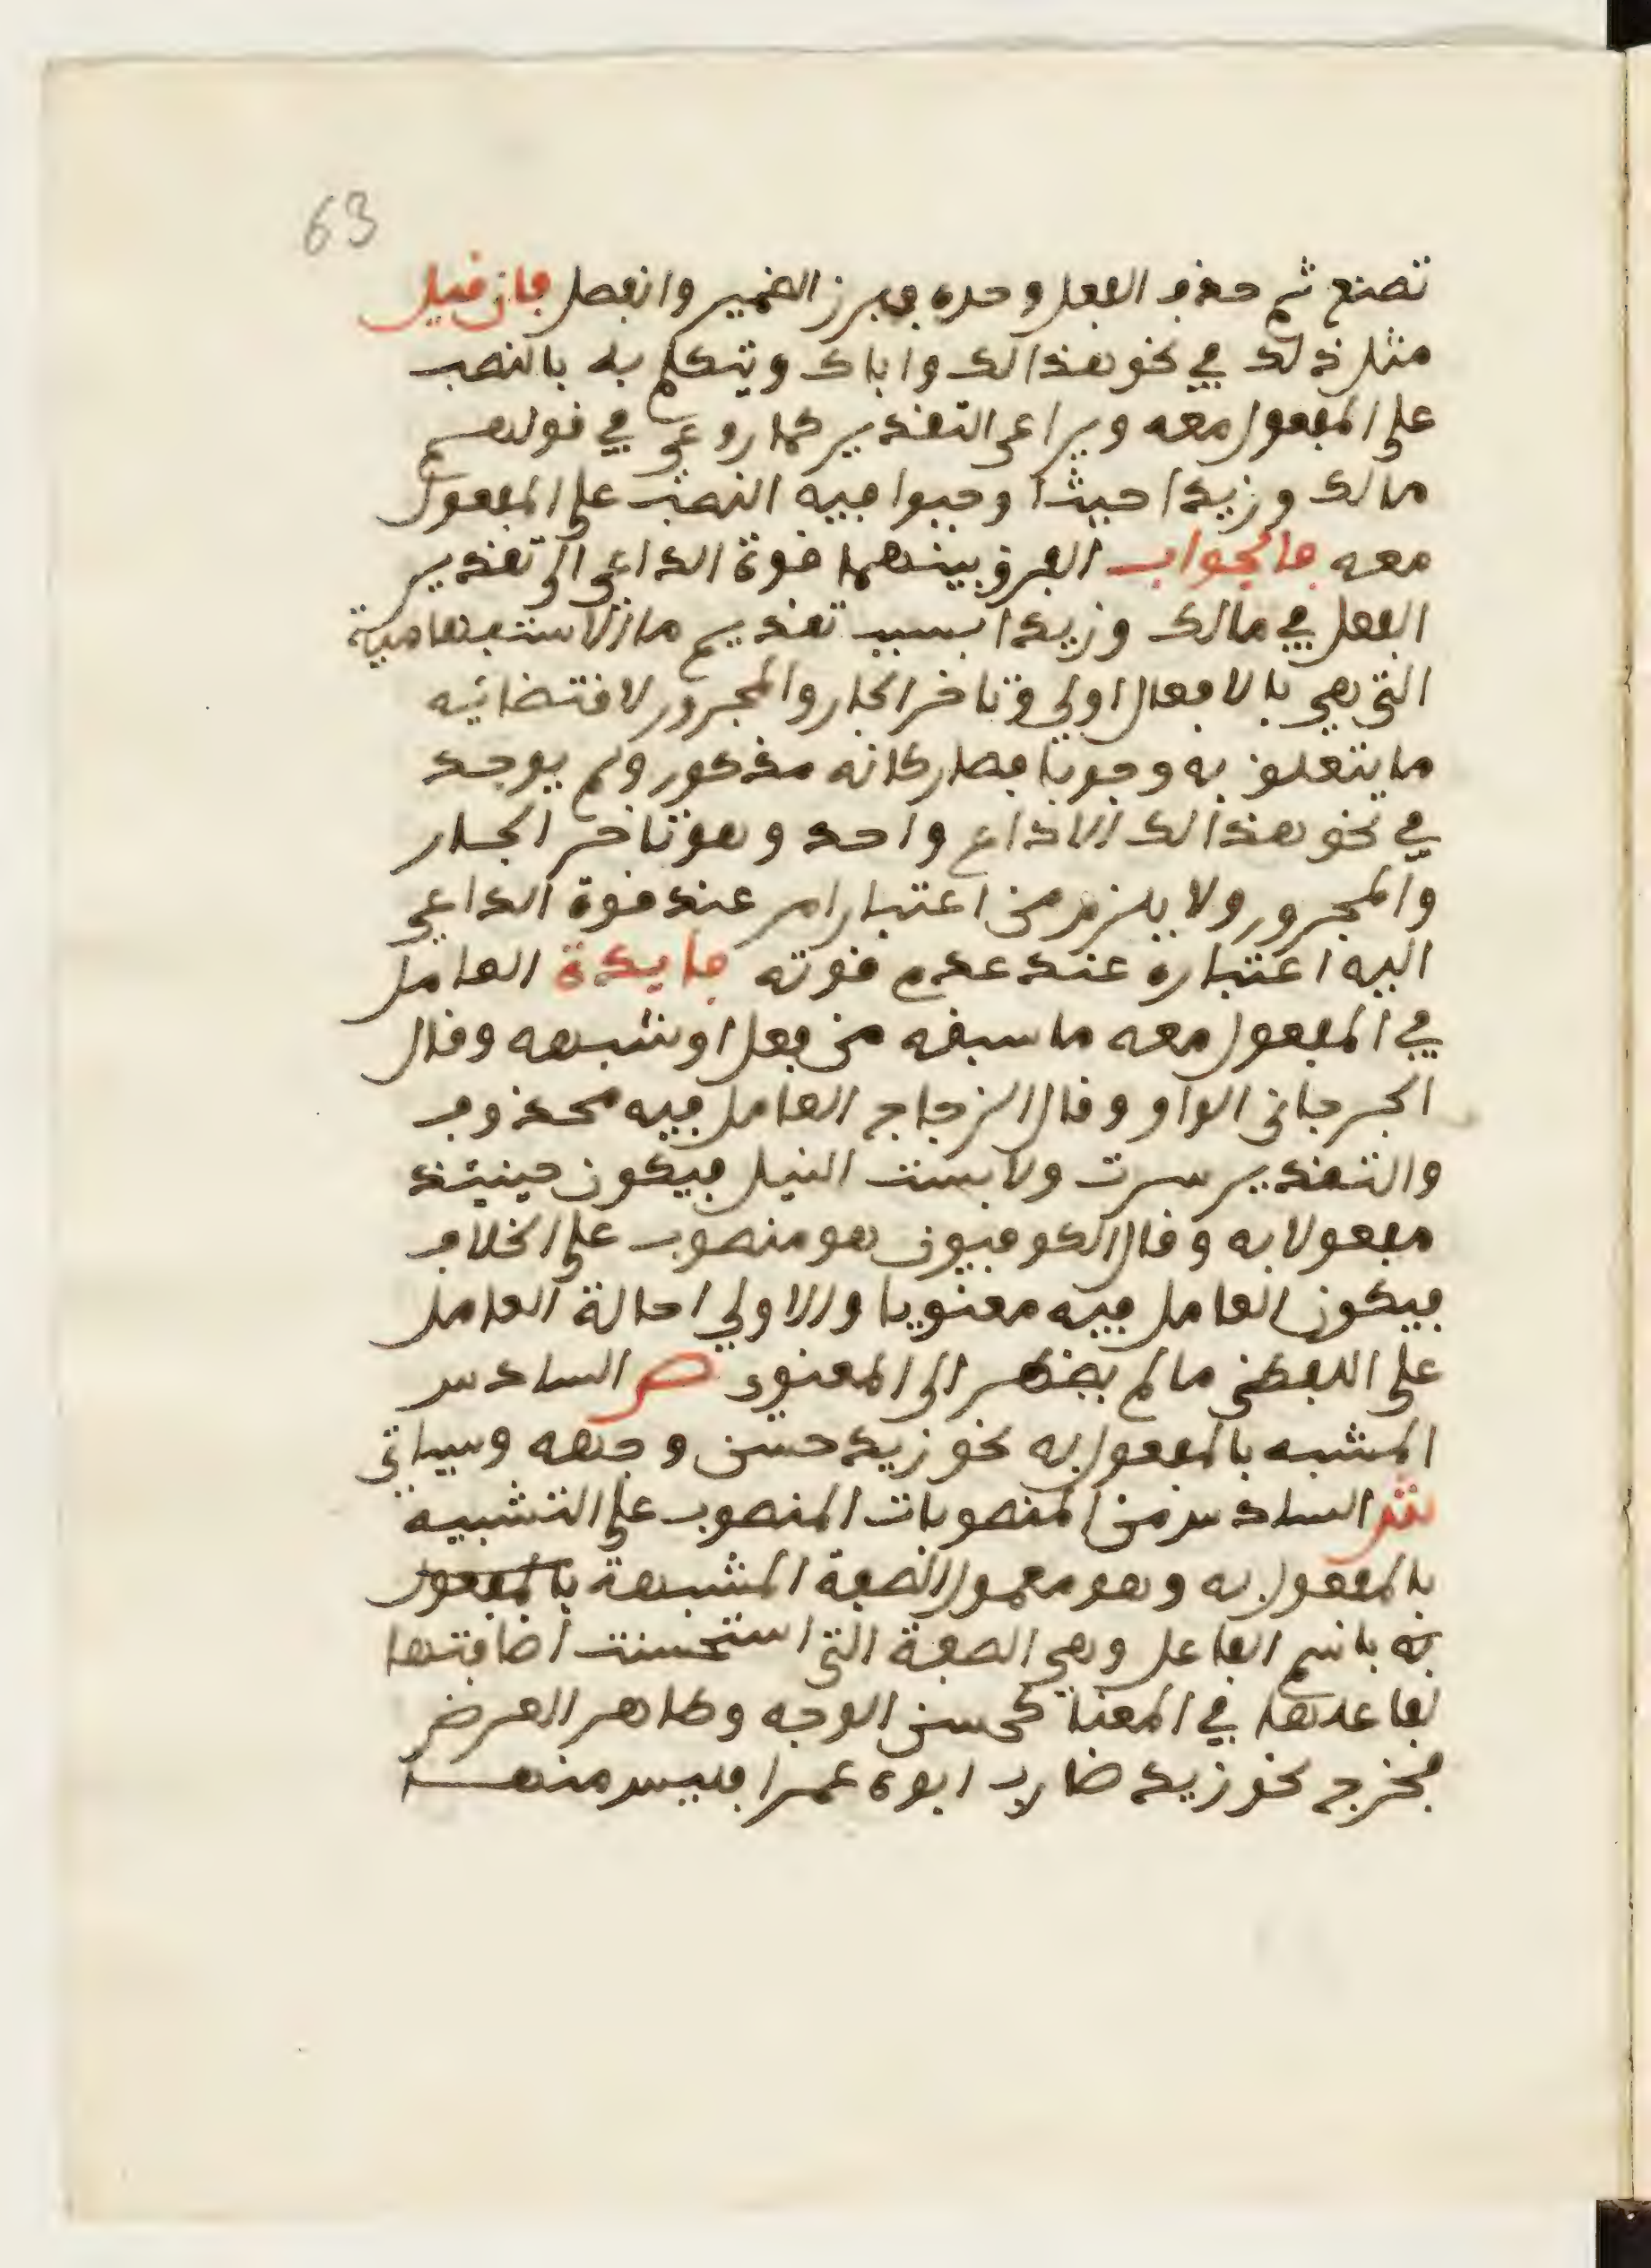 63
تصنع ثم حذف الفعل وحده فبرز الضمير وانفصل فان قيل
مثل ذلك في نحو هذا لك واباك ويتكلم به بالنصب
على المفعول معه ويراعى التقدير كما روعي في قولهم
مالك وزيدا حيث اوجبوا فيه النصب على المفعول
معه فالجواب الفرق بينهما قوة الداعي الى تقدير
الفعل في مالك وزيدا بسبب تقديم ما الاستفهامية
التي هي بالافعال اولى وتاخر الجار والمجرور لاقتضائيه
ما يتعلق به وجوبا فصار كانه مذكور ولم يوجد
في نحو هذا لك الا داع واحد وهو تاخر الجار
والمجرور ولا يلزم من اعتبار امر عند قوة الداعي
اليه اعتباره عند عدم قوته فايدة العامل
في المفعول معه ما سبقه من فعل او شبهه وقال
الجرجاني الواو وقال الزجاج العامل فيه محذوف
والتقدير سرت ولابست النيل فيكون حينئذ
مفعولا به وقال الكوفيون هو منصوب على الخلاف
فيكون العامل فيه معنويا والاولي احالة العامل
على اللفظي ما لم يضطر الى المعنوي ص السادس
المشبه بالمفعول به نحو زيد حسن وجهه وسياتي
ش السادس من المنصوبات المنصوب على التشبيه
بالمفعول به وهو معمول الصفة المشبهة بالمفعول
به باسم الفاعل وهي الصفة التي استحسنت اضافتها
لفاعلها في المعنا كحسن الوجه وطاهر العرض
فخرج نحو زيد ضارب ابوه عمرا فليس منها